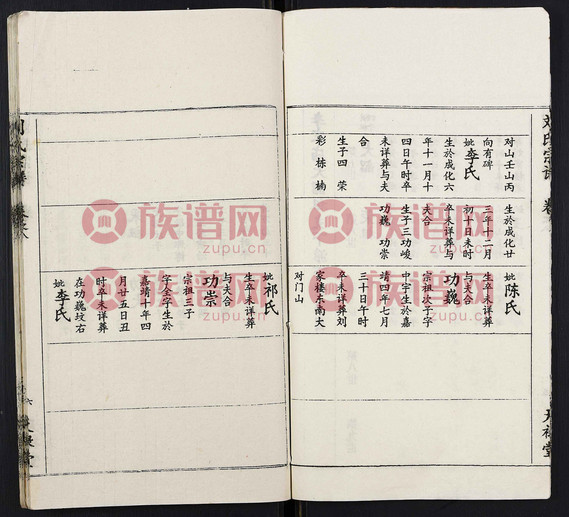 对山壬山丙
向有碑
妣李氏
生於成化六
年十一月十
四日午时卒
未详葬与夫
生子四 荣
彩 栋 楠
生於成化廿
三年十二月
初十日未时
卒未详葬与
夫合
生子三功峻
功巍 功崇
妣陈氏
生卒未详葬
与夫合
功巍
宗祖次子字
中宇生於嘉
靖四年七月
三十日午时
卒未详葬刘
家楼东南大
对门山
妣祁氏
生卒未详葬
与夫合
功崇
宗祖三子
字金宇生於
嘉靖十年四
月廿五日丑
时卒未详葬
在功巍坟右
妣李氏
刘氏宗谱
天禄堂
族谱网
zupu.cn
族谱网
zupu.cn
族谱网
zupu.cn
族谱网
zupu.cn